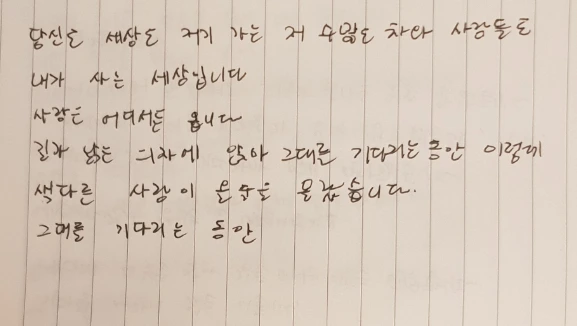 당신도 세상도 저기 가는 저 수많은 차와 사람들도
내가 사는 세상입니다
사랑은 어디서든 옵니다
길가 낡은 의자에 앉아 그대를 기다리는 동안 이렇게
색다른 사랑이 올 줄은 몰랐습니다.
그대를 기다리는 동안